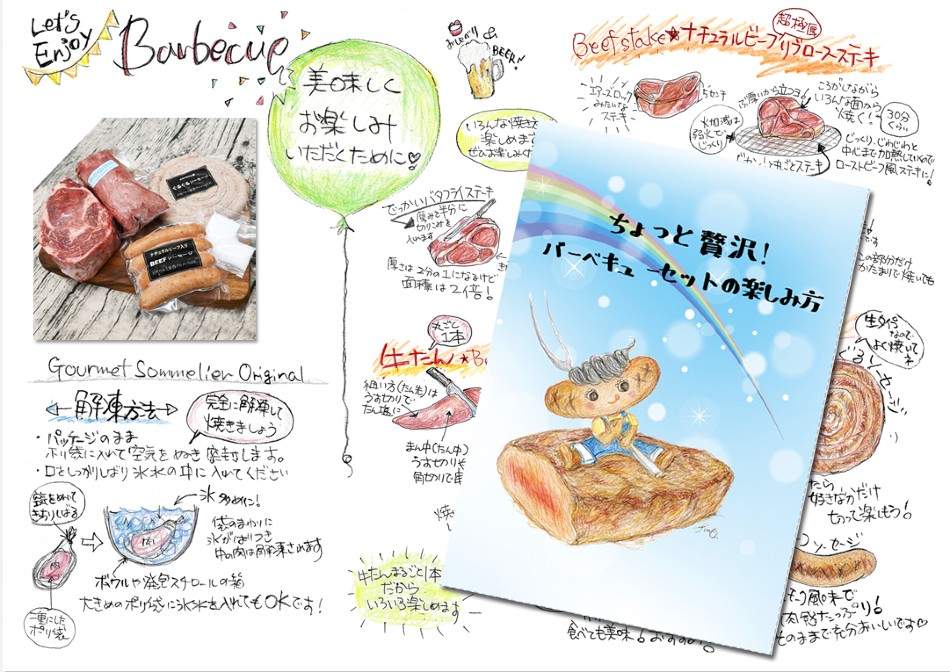 Let's
Enjoy
Barbecue
美味しく
お楽しみ
いただくために♡
おしゃべり&
BEER!
Beefstake★ナチュラルビーフリブロースステーキ
超極厚
エアーズロック
みたいな
ステーキ
5センチ
火加減は
弱火で
じっくり
ぶ厚いから立つヨ!
ころがしながら
いろんな面から
焼く!
30分
くらい
じっくり、じわじわと
中心まで加熱しているので
ローストビーフ風ステーキに!
いろんな焼き方
楽しめます
ぜひお楽しみ
でっかいバタフライステーキ
厚みを半分に
切りこみを
入れます
厚さは2分の1になるけど
面積は2倍!
くるくるソーセージ
ナチュラルビーフ入り
BEEFソーセージ
Gourmet Sommelier Original
解凍方法
完全に解凍して
焼きましょう
・パッケージのまま
ポリ袋に入れて空気をぬき密封します。
・口をしっかりしばり氷水の中に入れてください
空気をぬいて
きっちりしばる
肉
二重にした
ポリ袋
氷 多めに!
袋のまわりに
氷がはりつき
中の肉は解凍されます
ボウルや発泡スチロールの箱
大きめのポリ袋に氷水を入れてもOKです!
丸ごと
1本
牛たん★
細い方(たん先)は
うすぎりで
たん塩に
まん中(たん中)
うすぎりや
角切りで
焼
牛たんまるごと1本
だから
いろいろ楽しめます
ちょっと贅沢!
バーベキューセットの楽しみ方
の部分だけ
かたまりで焼いても
生タイプ
なので
よく焼いてネ
ソーセージ
たら
好きなだけ
切って楽しもう!
ソーセージ
スモーク風味で
肉汁たっぷり!
そのままで充分おいしいです♡
食べても美味!おすすめ!